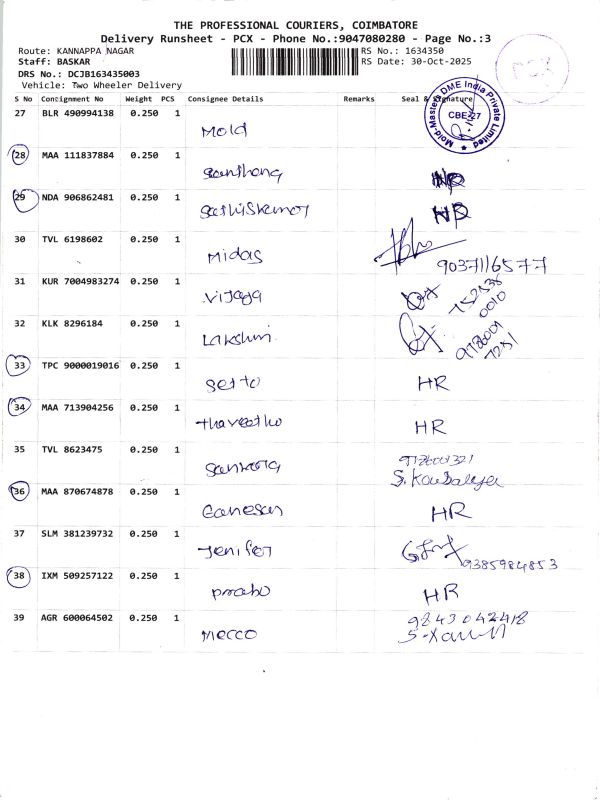 THE PROFESSIONAL COURIERS, COIMBATORE
Delivery Runsheet - PCX - Phone No.:9047080280 - Page No.:3
Route: KANNAPPA NAGAR RS No.: 1634350
Staff: BASKAR RS Date: 30-Oct-2025
DRS No.: DCJB163435003
Vehicle: Two Wheeler Delivery
PCX
S No Consignment No Weight PCS Consignee Details Remarks Seal & Signature
Mold-Masters DME India Private Limited
CBE-27
27 BLR 490994138 0.250 1 Mold
28 MAA 111837884 0.250 1 Santhang
29 NDA 906862481 0.250 1 SathisKumar
30 TVL 6198602 0.250 1 Midas 9037116577
31 KUR 7004983274 0.250 1 Vijaya
32 KLK 8296184 0.250 1 Lakshmi
33 TPC 9000019016 0.250 1 Setto HR
34 MAA 713904256 0.250 1 HR
35 TVL 8623475 0.250 1 Sankara
36 MAA 870674878 0.250 1 Ganesan HR
37 SLM 381239732 0.250 1 Jenifer 9385984853
38 IXM 509257122 0.250 1 Prabo HR
39 AGR 600064502 0.250 1 Mecco 9843042418